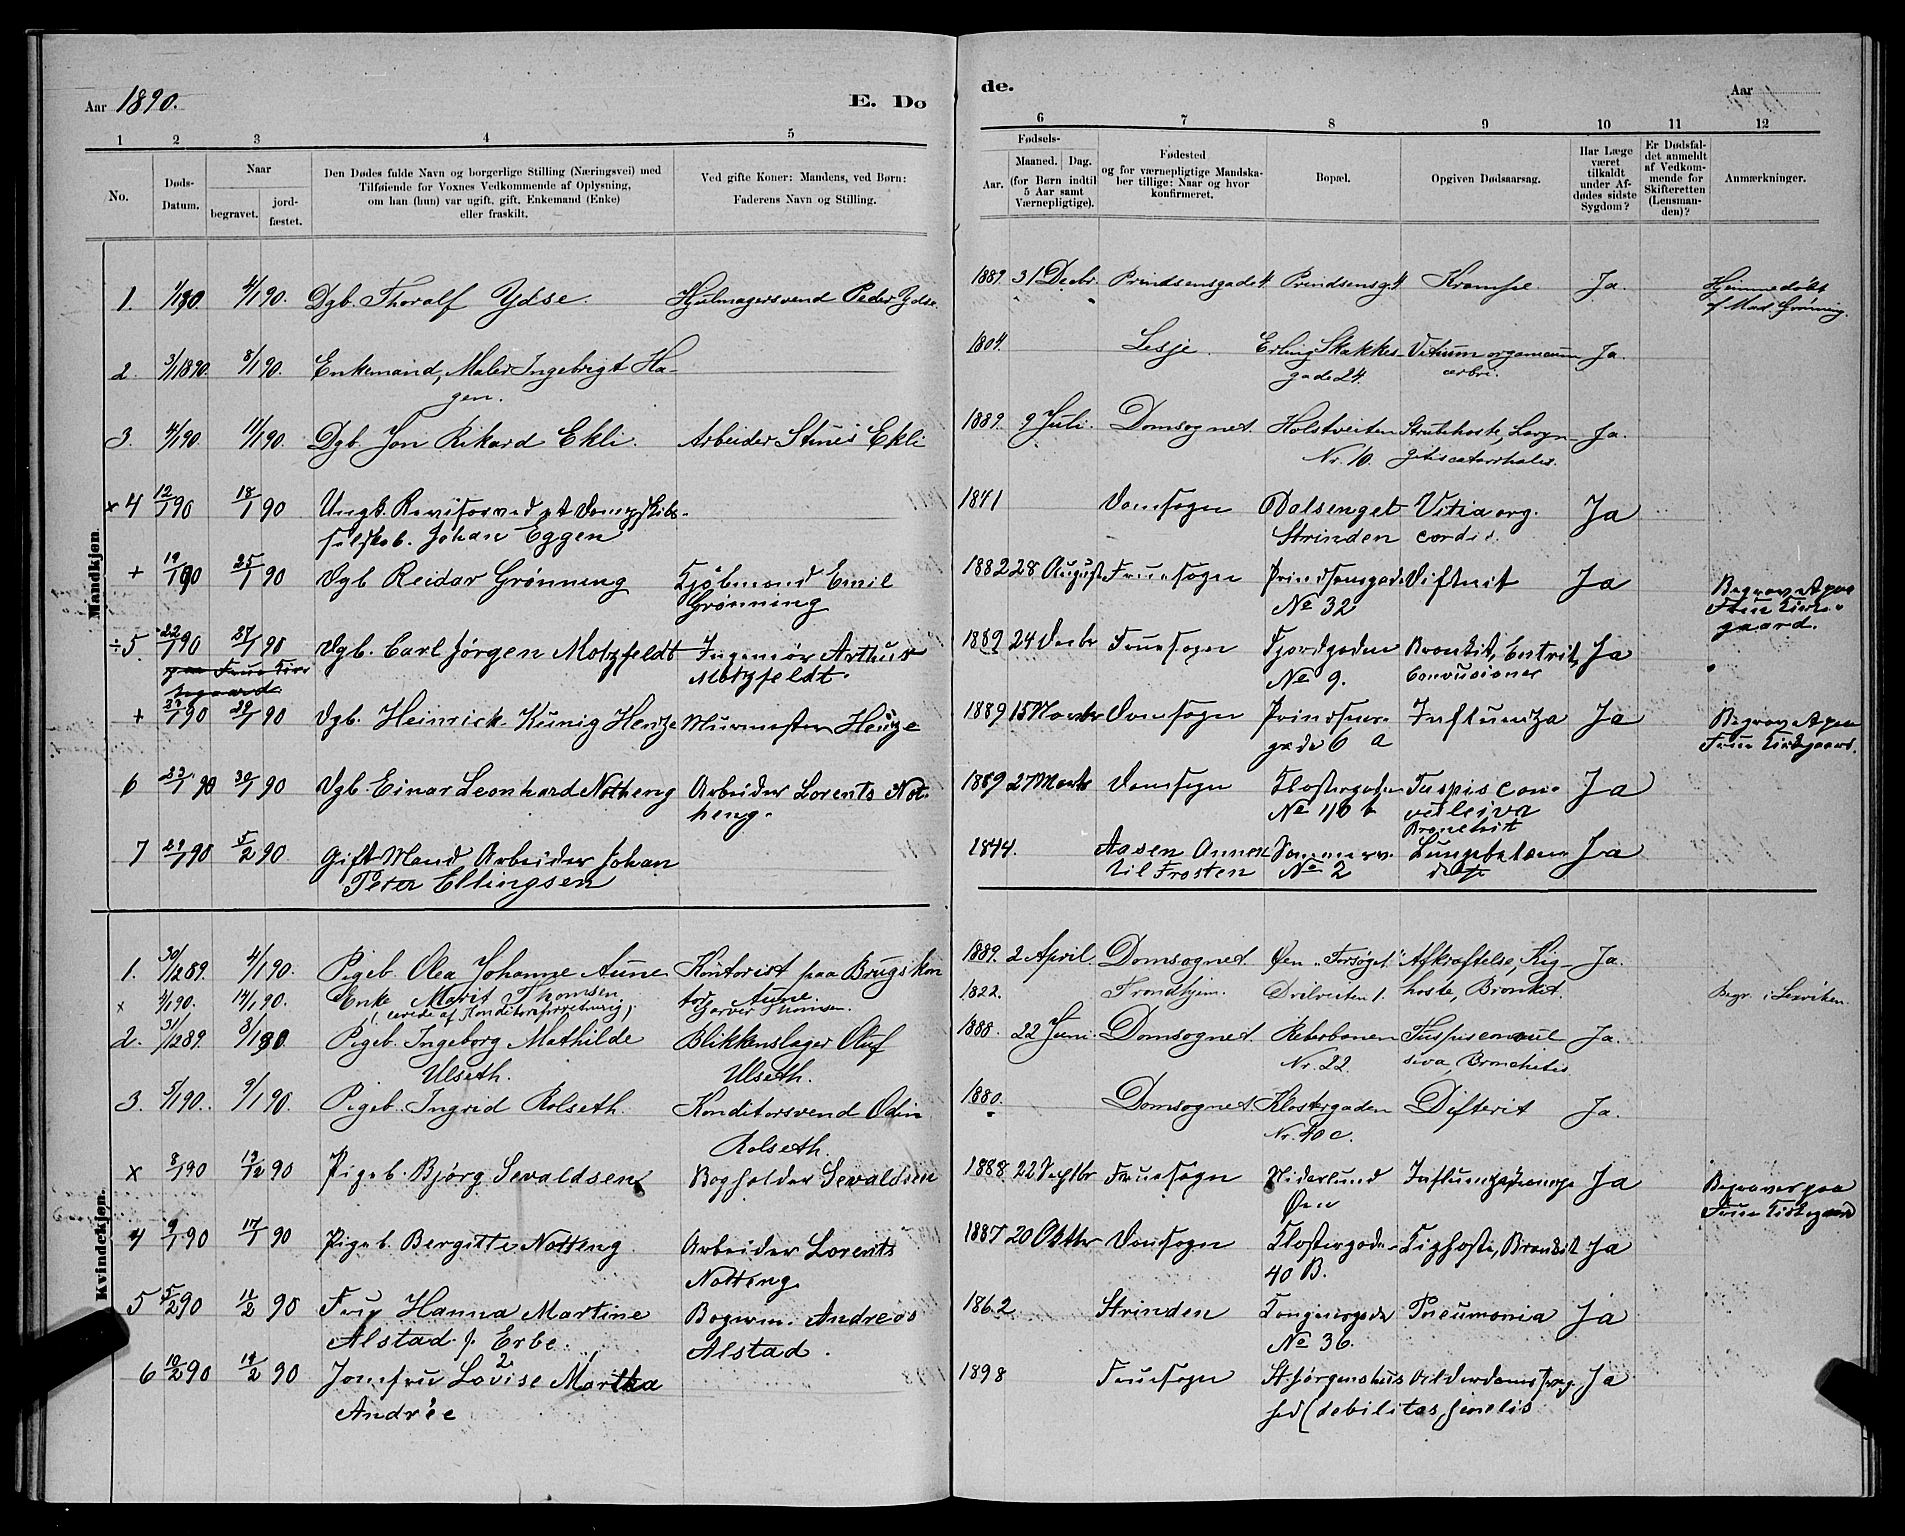 Aar 1890.
E. Dø
de.
Aar
1 2 3 4 5
6 7 8 9 10 11 12
No.
Døds-
Datum.
Naar
begravet.
jord-
fæstet.
Den Dødes fulde Navn og borgerlige Stilling (Næringsvei) med
Tilføiende for Voxnes Vedkommende af Oplysning,
om han (hun) var ugift, gift, Enkemand (Enke)
eller fraskilt.
Ved gifte Koner: Mandens, ved Børn:
Faderens Navn og Stilling.
Fødsels-
Aar.
Maaned. Dag.
(for Børn indtil
5 Aar samt
Værnepligtige).
Fødested
og for værnepligtige Mandska-
ber tillige: Naar og hvor
konfirmeret.
Bopæl.
Opgiven Dødsaarsag.
Har Læge
været
tilkaldt
under Af-
dødes sidste
Sygdom?
Er Dødsfal-
det anmeldt
af Vedkom-
mende for
Skifteretten
(Lensman-
den)?
Anmærkninger.
Mandkjøn.
1. 1/1 90. 4/1 90. Dgb. Thoralf Ydse. Hjulmagersvend Peder Ydse. 1889. 31 Decbr. Prindsensgade 4 Prindsensg. 4 Krampe. Ja. Hjemmedøbt
af Mad. Grönning.
2. 3/1 1890. 8/1 90. Enkemand, Maler Ingebrigt Ha- 1804. Lesje. Erling Skakkes- Vitium organicum Ja.
gen. gade 24. cerbri.
3. 4/1 90. 11/1 90. Dgb. Jon Rikard Ekli. Arbeider Stinis Ekli 1889. 9 Juli. Domsognet. Holstveiten Strubehoste, Laryn- Ja.
Nr. 10. gitis catarrhalis.
× 4 12/1 90 18/1 90 Ungk. Revisor ved Dampskibs- 1841 Domsogn Dalsenget Vitia org. Ja
selskab. Johan Eggen Strinden cordis.
+ 19/1 90 25/1 90 Dgb. Reidar Grønning Kjøbmand Emil 1882 28 August Fruesogn Prindsensgade Difterit Ja Begravet paa
Grønning No 32 Frue Kirke-
gaard.
÷ 5 22/1 90 27/1 90 Dgb. Carl Jörgen Motzfeldt Ingeniør Arthur 1889 24 Decbr Fruesogn Fjordgaden Bronkit, Entrit, Ja
paa Frue Kir- Motzfeldt. No 9. Convusioner
kegaard
+ 23/1 90 29/1 90 Dgb. Heinrick Künig Henze Murmester Henze 1889 15 Novbr Domsogn Prindsens- Influenza Ja Begravet paa
gade 6 a Frue Kirkegaard.
6 23/1 90 30/1 90 Dgb. Einar Leonhard Notheng Arbeider Lorents Not- 1889 27 Marts Domsogn Klostergaden Tuspis con- Ja
heng. No 40 b vulsiva
Bronchit
7 29/1 90 5/2 90 Gift Mand Arbeider Johan 1844. Aasen Annex Sommerv. Lungebetæn- Ja
Peter Ellingsen til Frosten No 2 delse
Kvindekjøn.
1. 30/12 89. 4/1 90. Pigeb. Olea Johanne Aune Kontorist paa Brugskon 1889. 2 April Domsognet Øen "Forsøget" Afkræftelse, Kig- Ja.
× 9/1 90. 14/1 90. Enke Marit Thomsen tor, Aune. 1822. Trondhjem. Dvilveiten 1. hoste, Bronkit. Begr. i Lexviken.
Garver Thomsen.
2. 31/12 89. 8/1 90. Pigeb. Ingeborg Mathilde Blikkenslager Oluf 1888. 22 Juni. Domsognet. Reberbanen Tuspis convul Ja.
Ulseth. Ulseth. Nr. 22. siva, Bronchitis
3. 5/1 90. 9/1 90. Pigeb. Ingrid Rolseth. Konditorsvend Odin 1880. Domsognet Klostergaden Difterit Ja.
Rolseth. Nr. 40 c.
× 8/1 90 13/12 90 Pigeb. Bjørg Sevaldsen Bogholder Sevaldsen 1888 22 Septbr Fruesogn Nidarlund Influenza, Krampe Ja Begraves paa
Øen Frue Kirkegaard
4 9/1 90 17/1 90 Pigeb. Bergitte Notteng Arbeider Lorents 1887 20 Oktbr Domsogn Klostergade- Kighoste, Bronkit Ja
Notteng 40 B.
5 5/2 90 11/2 90 Frue Hanna Martine Bogerm. Andreas 1862 Strinden Kongensgade Pneumonia Ja
Alstad f. Erbe. Alstad. No 36.
6 10/2 90 14/2 90 Jomfru Lovise Martha 1898 Fruesogn St Jørgenshus Alderdomssvag- Ja
Andrée hed (debilitas senelis